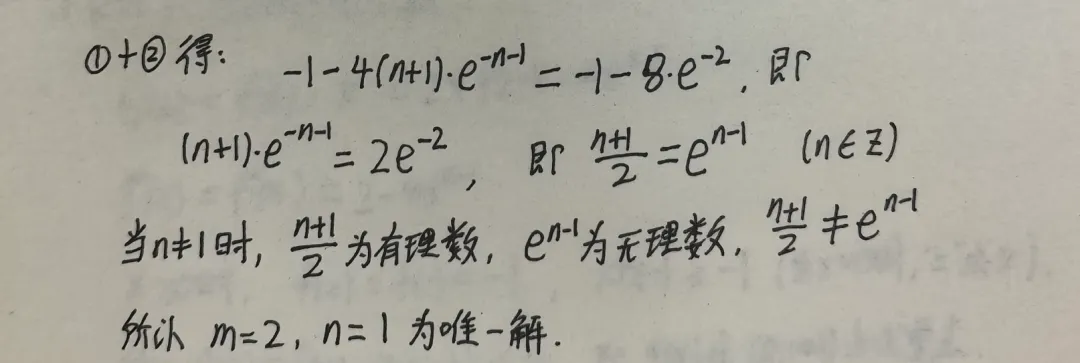 ①+②得: -1-4(n+1)·e^{-n-1}=-1-8·e^{-2}, 即
(n+1)·e^{-n-1}=2e^{-2}, 即 \frac{n+1}{2}=e^{n-1} (n∈Z)
当n≠1时, \frac{n+1}{2}为有理数, e^{n-1}为无理数, \frac{n+1}{2}≠e^{n-1}
所以 m=2, n=1 为唯一解.